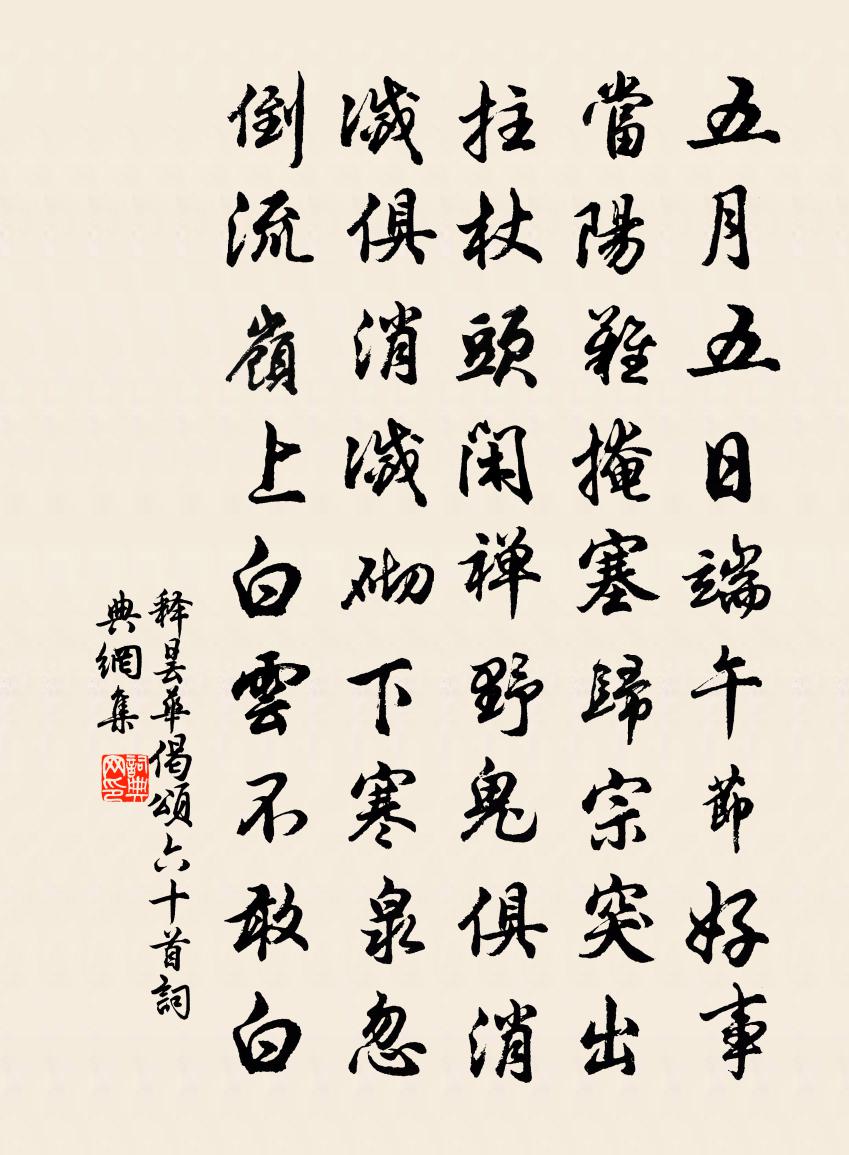 五月五日端午節好事
當陽難掩塞歸宗突出
拄杖頭閑禅野鬼俱消
滅俱消滅砌下寒泉忽
倒流嶺上白雲不敢白
释曇華偈頌六十首詞
典網集
詞典網印